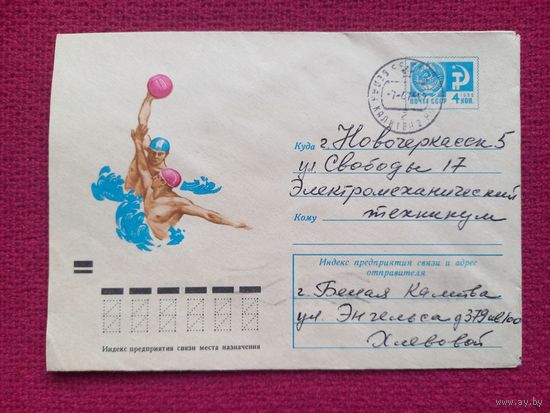 ПОЧТА СССР
1966
4 КОП.
Куда г. Новочеркасск 5
ул. Свободы 17
Электромеханический
Кому техникум
Индекс предприятия связи и адрес
отправителя
г. Белая Калитва
ул. Энгельса
Хлевовой
Индекс предприятия связи места назначения
www.ay.by